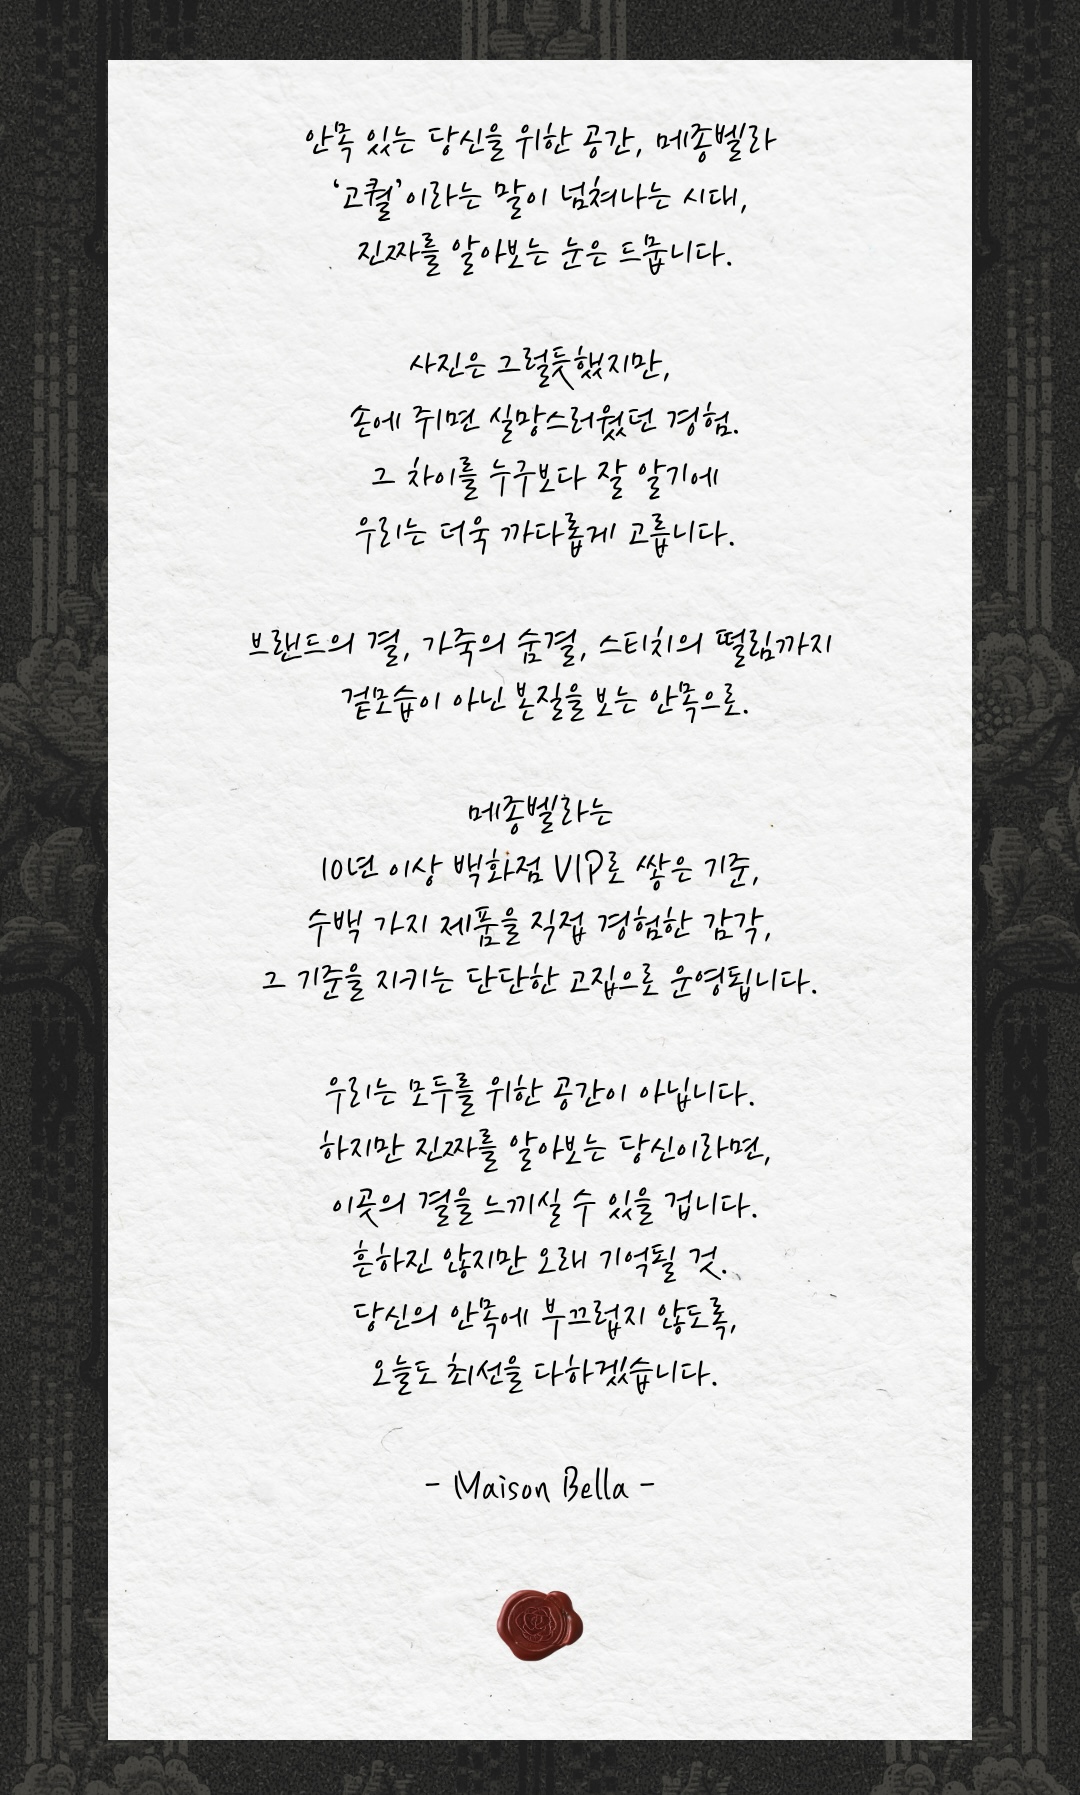 안목 있는 당신을 위한 공간, 메종벨라
‘고퀄’이라는 말이 넘쳐나는 시대,
진짜를 알아보는 눈은 드뭅니다.
사진은 그럴듯했지만,
손에 쥐면 실망스러웠던 경험.
그 차이를 누구보다 잘 알기에
우리는 더욱 까다롭게 고릅니다.
브랜드의 결, 가죽의 숨결, 스티치의 떨림까지
겉모습이 아닌 본질을 보는 안목으로.
메종벨라는
10년 이상 백화점 VIP로 쌓은 기준,
수백 가지 제품을 직접 경험한 감각,
그 기준을 지키는 단단한 고집으로 운영됩니다.
우리는 모두를 위한 공간이 아닙니다.
하지만 진짜를 알아보는 당신이라면,
이곳의 결을 느끼실 수 있을 겁니다.
흔하진 않지만 오래 기억될 것.
당신의 안목에 부끄럽지 않도록,
오늘도 최선을 다하겠습니다.
- Maison Bella -